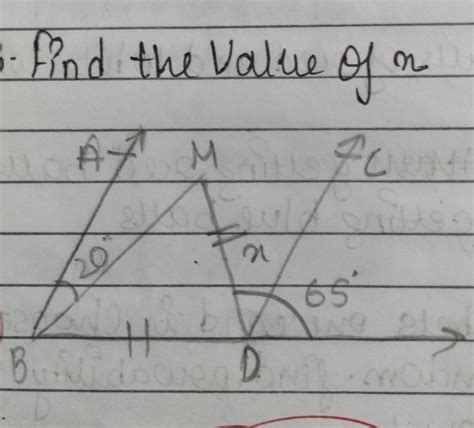 . find the Value of x
A
M
C
20°
x
65°
B
D